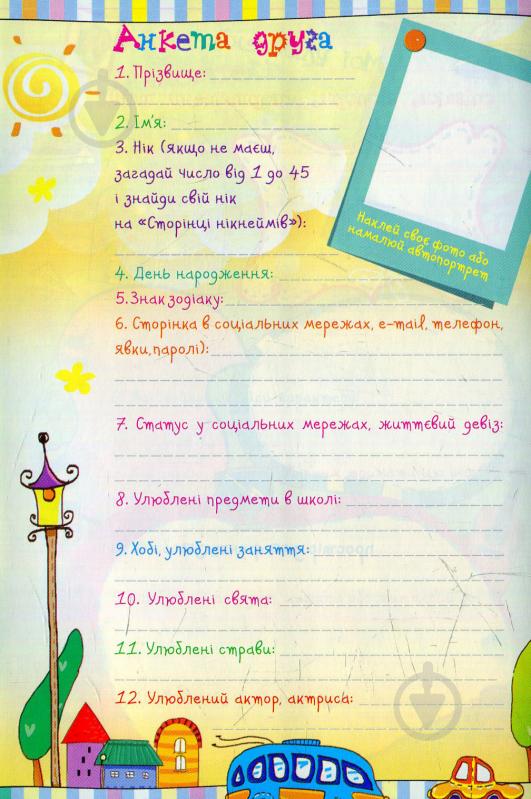 Анкета друга
1. Прізвище:
2. Ім'я:
3. Нік (якщо не маєш,
загадай число від 1 до 45
і знайди свій нік
на «Сторінці нікнеймів»):
Наклей своє фото або
намалюй автопортрет
4. День народження:
5. Знак зодіаку:
6. Сторінка в соціальних мережах, e-mail, телефон,
явки, паролі):
7. Статус у соціальних мережах, життєвий девіз:
8. Улюблені предмети в школі:
9. Хобі, улюблені заняття:
10. Улюблені свята:
11. Улюблені страви:
12. Улюблений актор, актриса: